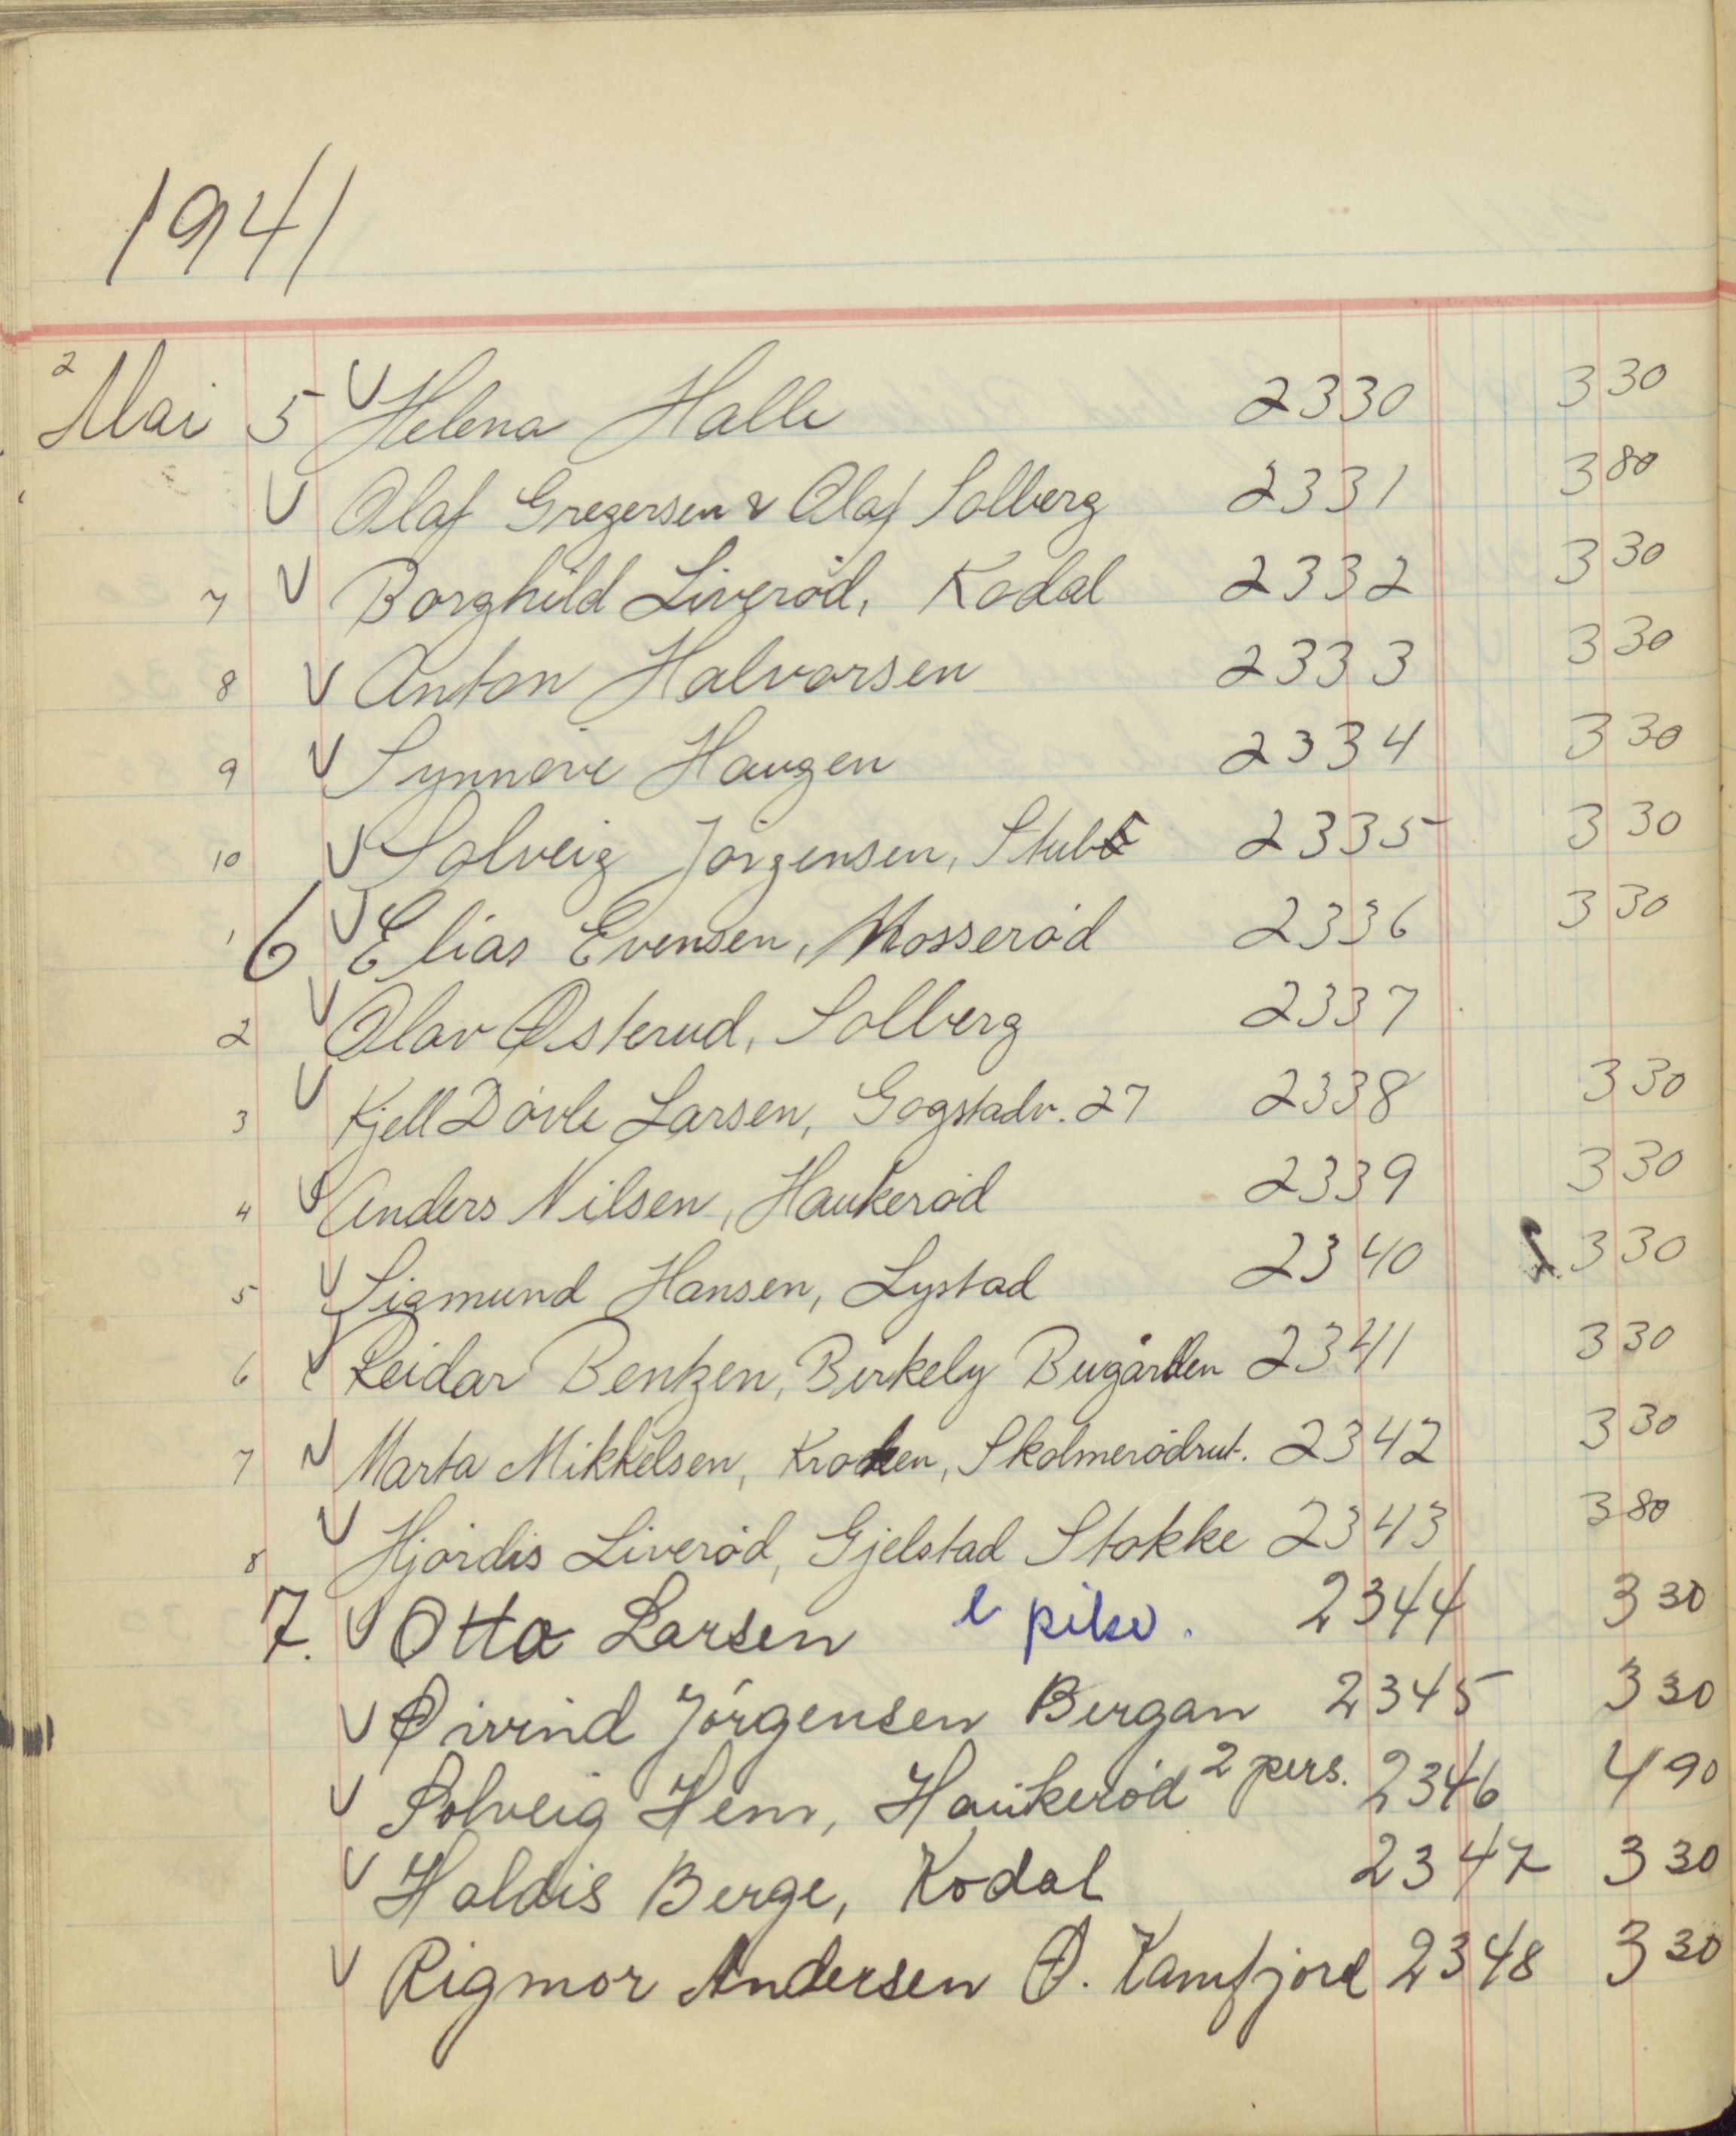 1941
2
Mai 5 V Helena Halle 2330 3 30
V Olaf Gregersen & Olaf Solberg 2331 3 80
7 V Borghild Liverød, Kodal 2332 3 30
8 V Anton Halvorsen 2333 3 30
9 V Synnøve Haugen 2334 3 30
10 V Solveig Jørgensen, Stub 2335 3 30
1 6 V Elias Evensen, Mosserød 2336 3 30
2 V Olav Østerud, Solberg 2337
3 V Kjell Døvle Larsen, Gogstadv. 27 2338 3 30
4 V Anders Nilsen, Haukerød 2339 3 30
5 V Sigmund Hansen, Lystad 2340 3 30
6 V Reidar Bentzen, Birkely Bugården 2341 3 30
7 V Marta Mikkelsen, Kroken, Skolmerødrut. 2342 3 30
8 V Hjørdis Liverød, Gjelstad Stokke 2343 3 80
7. V Otto Larsen pike. 2344 3 30
V Øivind Jørgensen Bergan 2345 3 30
V Solveig Hem, Haukerød 2 pers. 2346 4 90
V Haldis Berge, Kodal 2347 3 30
V Rigmor Andersen Ø. Kamfjord 2348 3 30